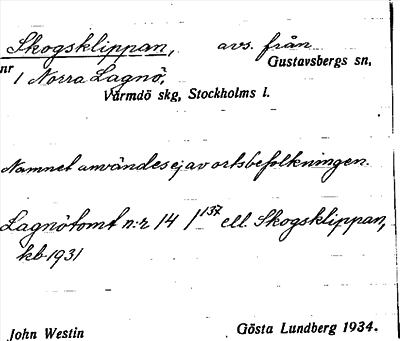 Skogsklippan, avs. från
nr 1 Norra Lagnö, Gustavsbergs sn,
Värmdö skg, Stockholms l.
Namnet användes ej av ortsbefolkningen.
Lagnötomt n:r 14 1/137 ell. Skogsklippan,
kb 1931
John Westin Gösta Lundberg 1934.